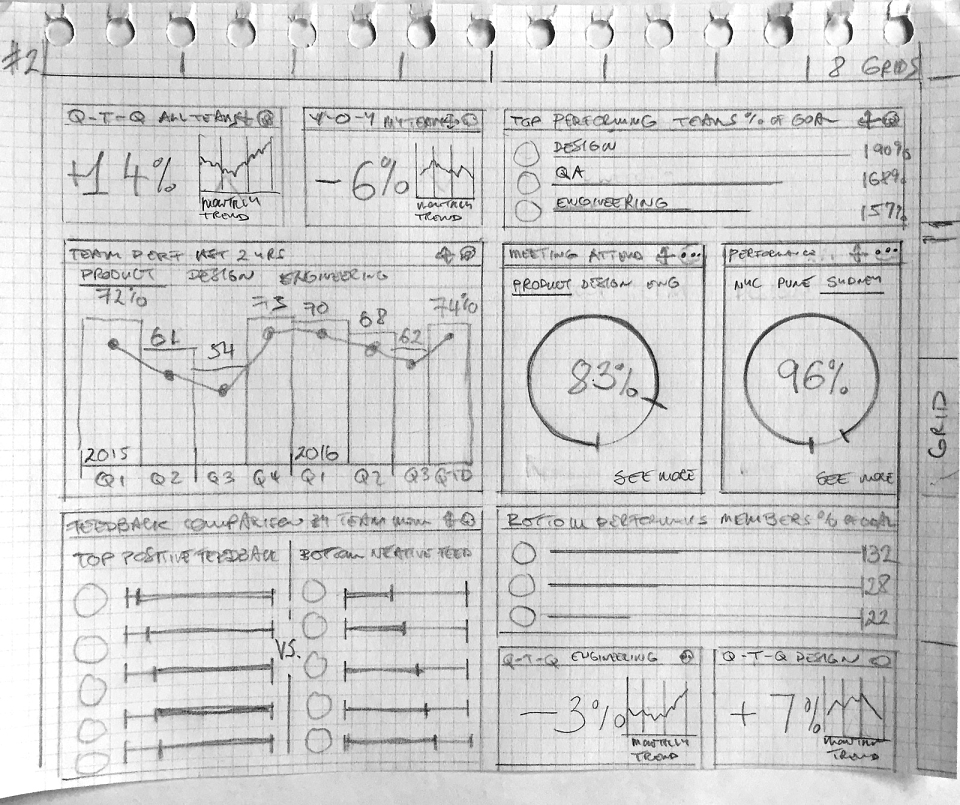 #2
8 GRIDS
Q-T-Q ALL TEAMS
+14%
MONTHLY
TREND
Y-O-Y MY TEAM
-6%
MONTHLY
TREND
TOP PERFORMING TEAMS % OF GOAL
DESIGN 190%
QA 168%
ENGINEERING 157%
TEAM PERF LAST 2 YRS
PRODUCT DESIGN ENGINEERING
72% 61 54 73 70 68 62 74%
2015 2016
Q1 Q2 Q3 Q4 Q1 Q2 Q3 QTD
MEETING ATTEND
PRODUCT DESIGN ENG
83%
SEE MORE
PERFORMANCE
NYC PUNE SYDNEY
96%
SEE MORE
GRID
FEEDBACK COMPARISON BY TEAM MEM
TOP POSITIVE FEEDBACK
VS.
BOTTOM NEGATIVE FEED
BOTTOM PERFORMING MEMBERS % OF GOAL
132
128
122
Q-T-Q ENGINEERING
-3%
MONTHLY
TREND
Q-T-Q DESIGN
+7%
MONTHLY
TREND